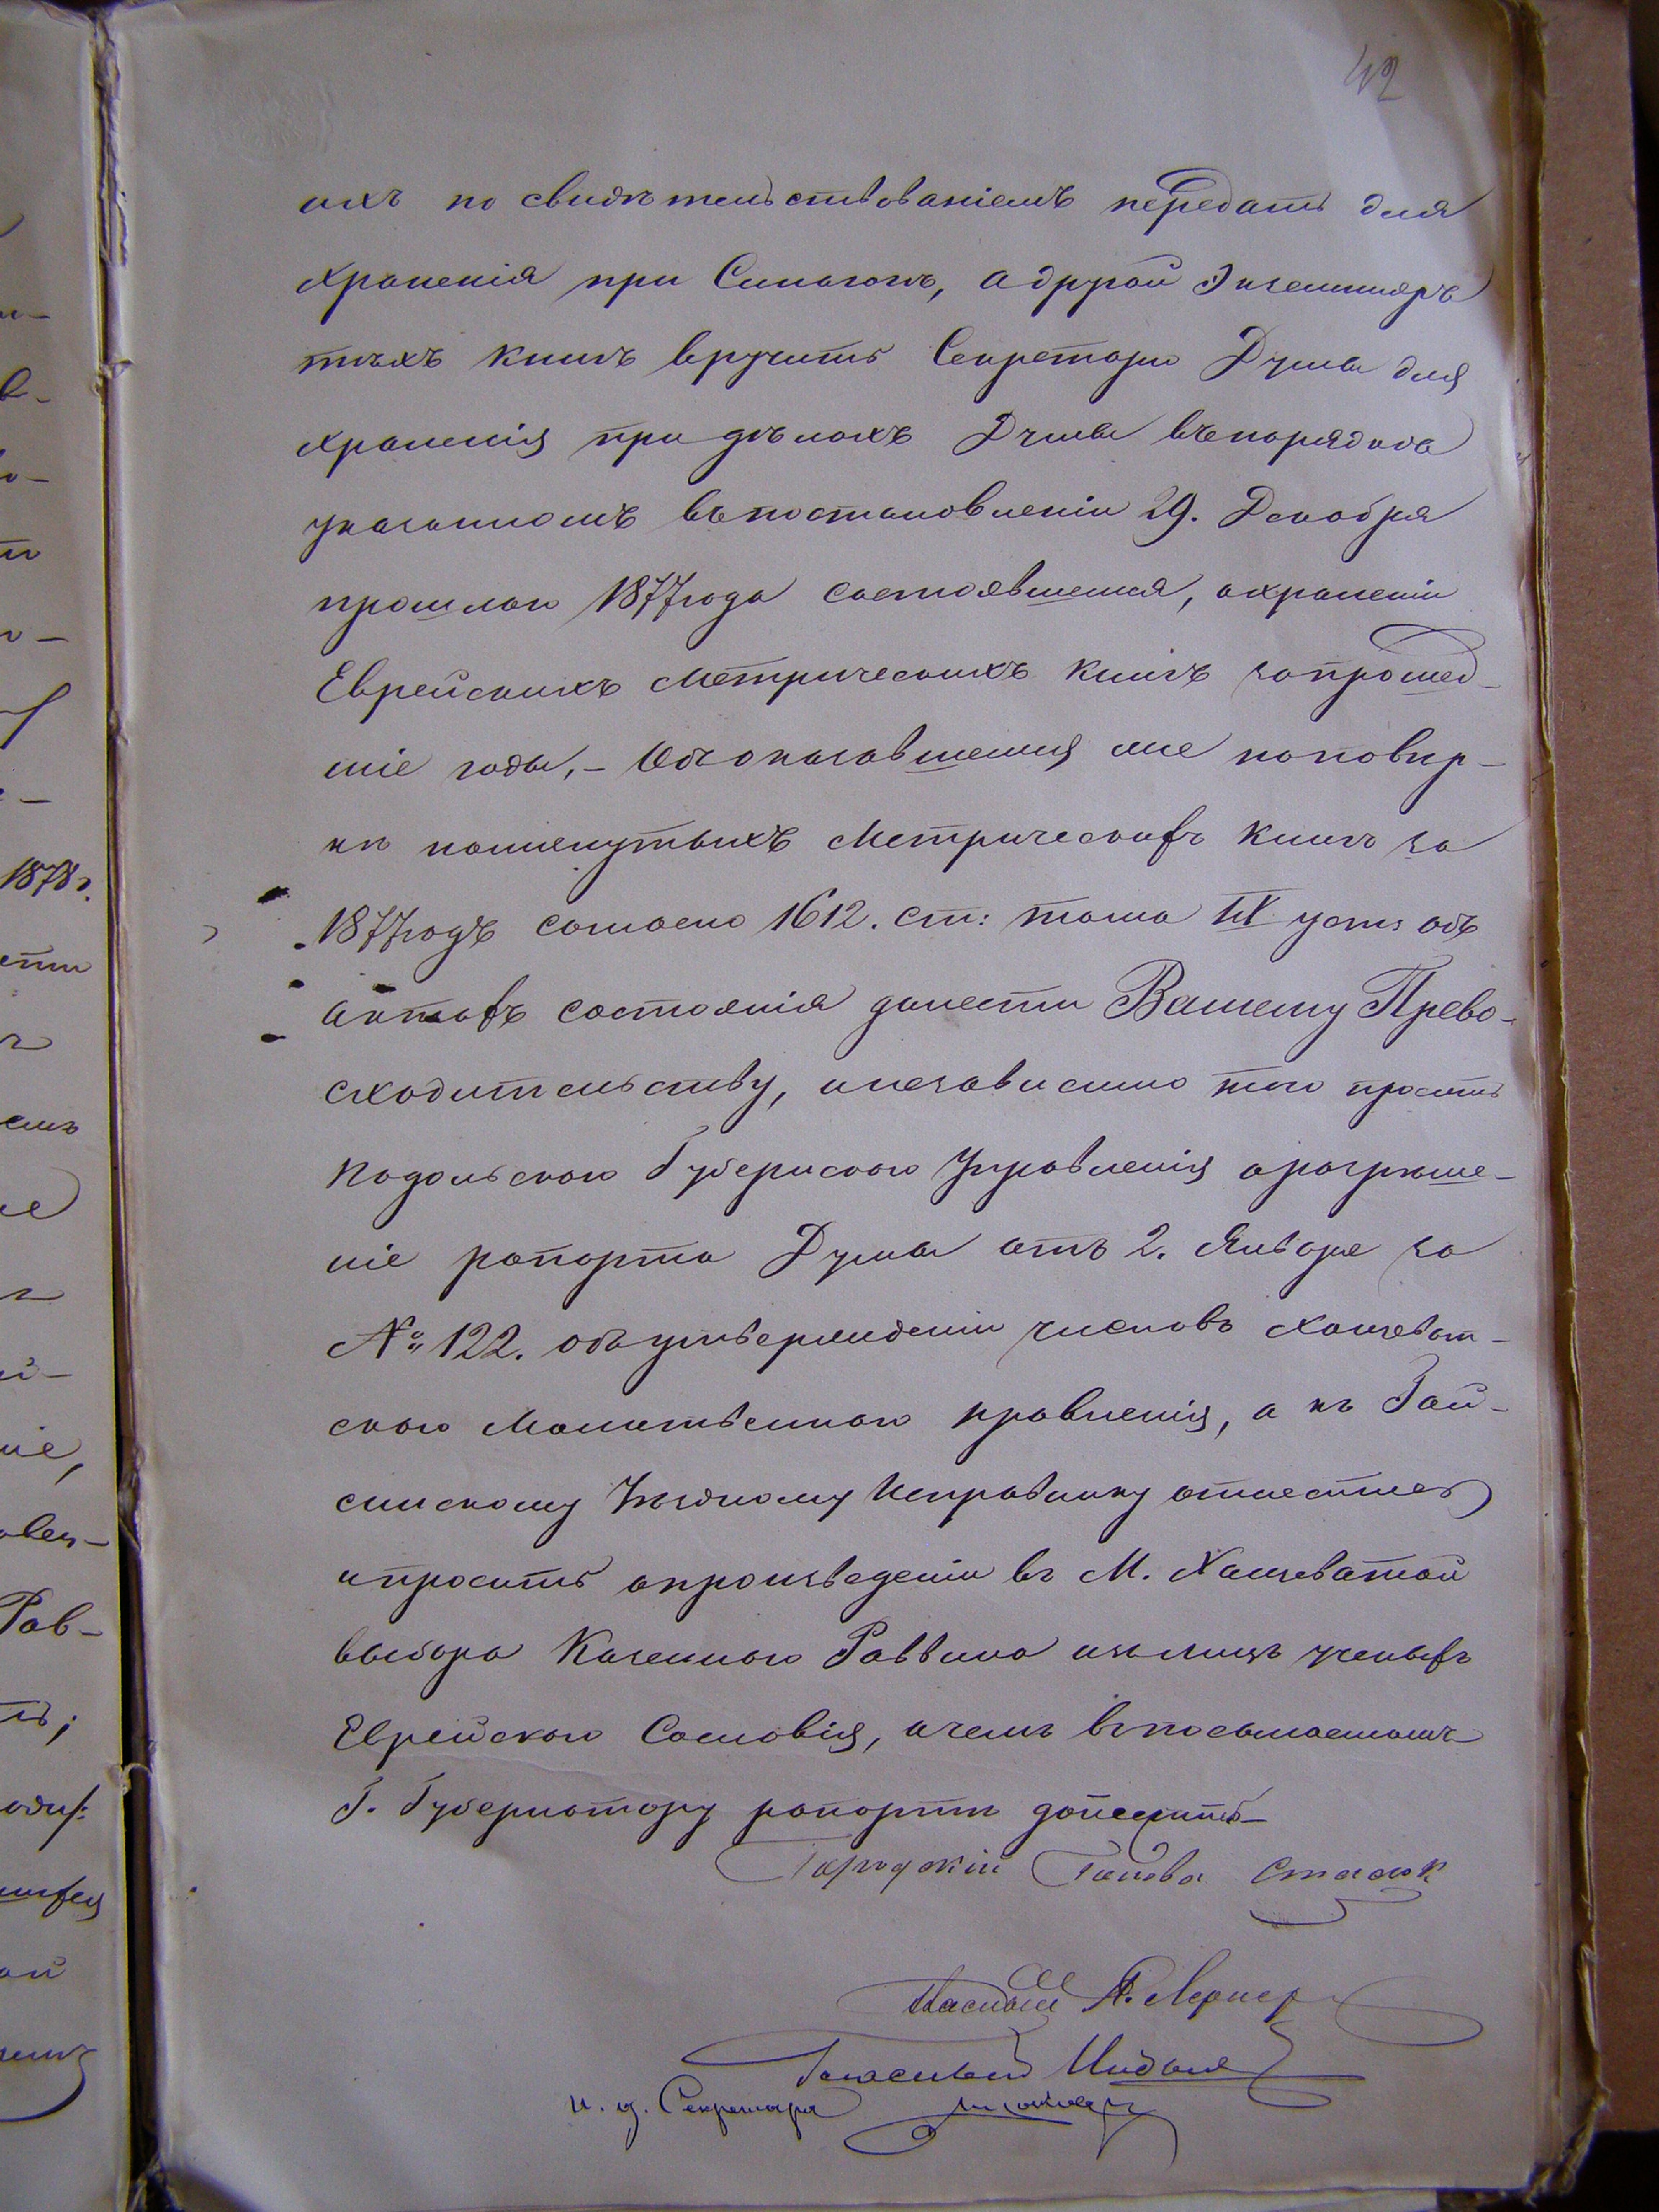 42
ихъ по свидѣтельствованіемъ передать для
храненія при Синагогѣ, а другой Экземпляръ
тѣхъ книгъ вручить Секретарю Думы для
храненія при дѣлахъ Думы въ порядкѣ
указанномъ въ постановленіи 29. Декабря
прошлаго 1877 года состоявшемся, о храненіи
Еврейскихъ Метрическихъ книгъ за прошед-
шіе годы,- Объ оказавшемся же по повѣр-
кѣ помянутыхъ Метрическихъ книгъ за
1877 годъ согласно 1612. ст: тома IX уст: объ
актахъ состоянія донести Вашему Прево-
сходительству, и независимо того просить
Подольскаго Губернскаго Управленія о разрѣше-
ніе рапорта Думы отъ 2. Января за
№ 122. объ утвержденіи членовъ Хащеват-
скаго Молитвеннаго правленія, а къ Гай-
синскому Уѣздному Исправнику отнестись
и просить о произведеніи въ М. Хащеватой
выбора Казеннаго Раввина изъ лицъ ученыхъ
Еврейскаго Сословія, о чемъ въ посылаемомъ
Г. Губернатору рапортѣ донести
Городской Голова
Гласный Лернер
Гласный
И. д. Секретаря